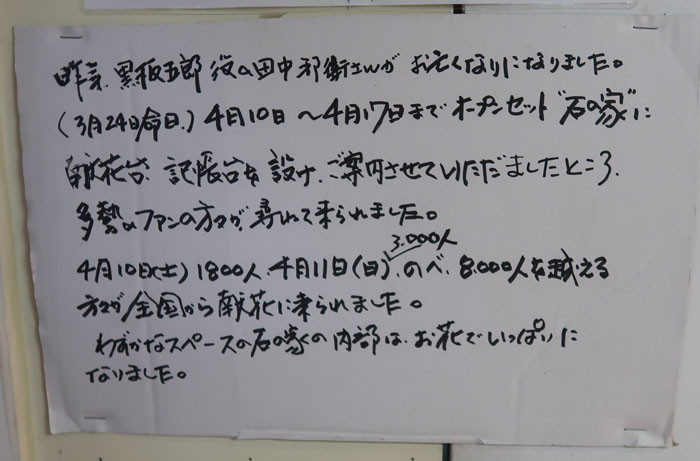 昨春、黒板五郎 役の田中邦衛さんが お亡くなりになりました。
(3月24日命日.) 4月10日 ～4月17日まで オープンセット"石の家"に
献花台、記帳台を 設け、ご案内させていただきましたところ、
多勢のファンの方々が、尋ねて来られました。
3.000人
4月10日(土) 1800人、4月11日(日)、のべ、8.000人を越える
方々が 全国から献花に来られました。
わずかなスペースの石の家の内部は、お花でいっぱいに
なりました。